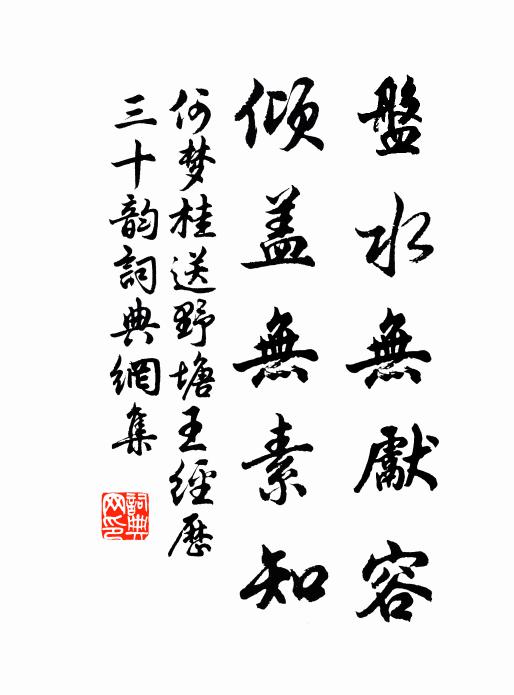 盤水無獻容
傾盖無素知
何梦桂送野塘王經歷
三十韵詞典網集
詞典网印